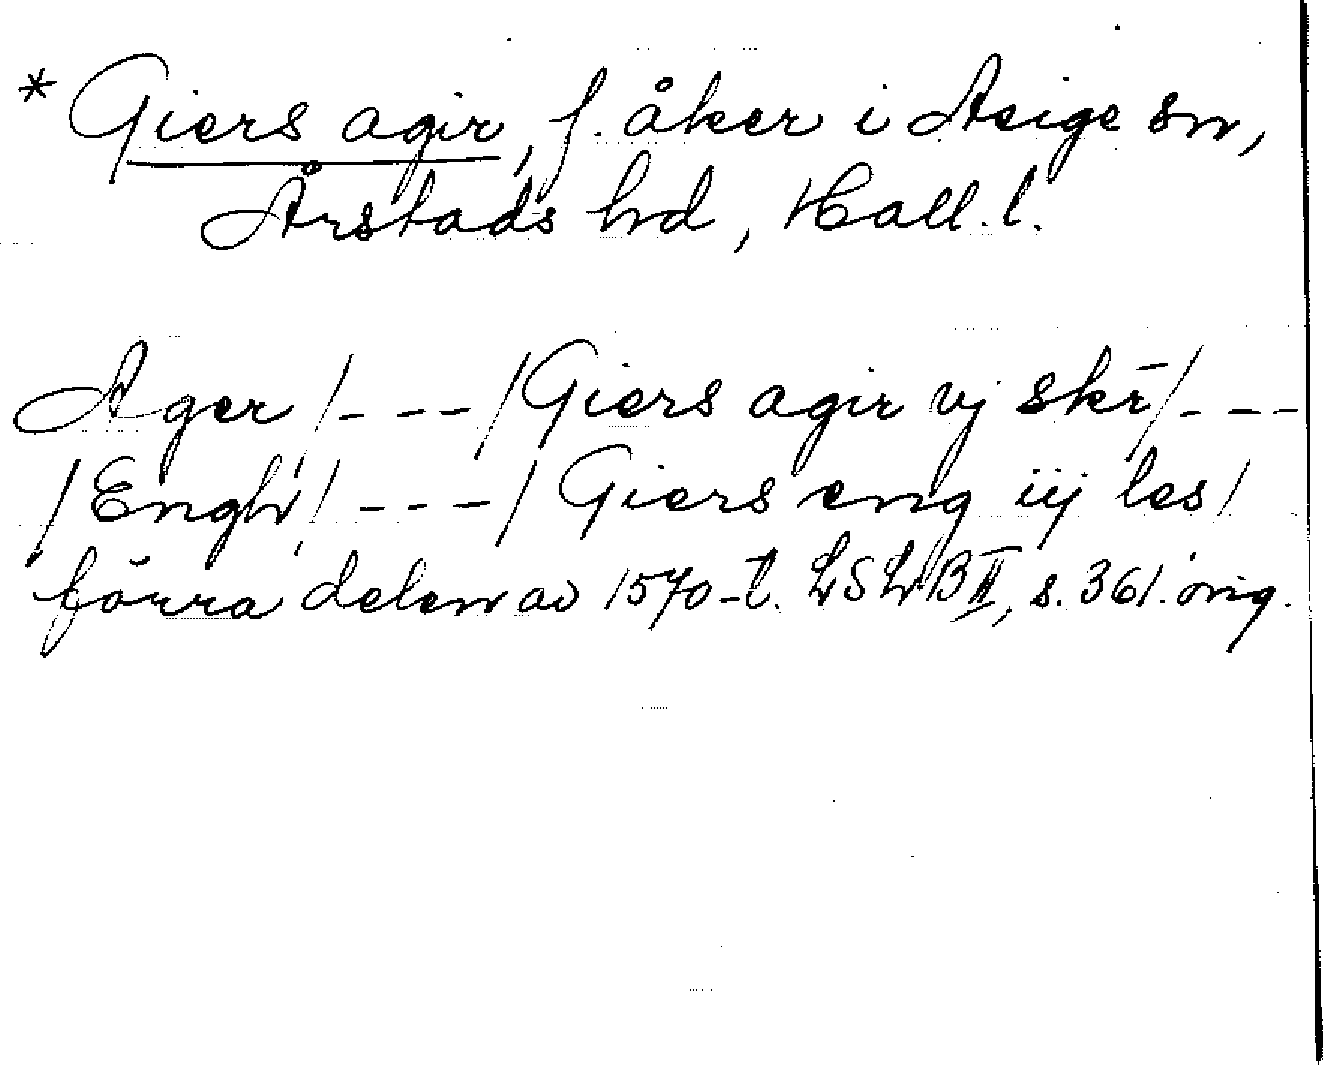 * Giers agir, f. åker i Asige sn,
Årstads hd, Hall. l.
Ager /- - -/ Giers agir vj skr̄ /- - -
/Engh/ - - -/ Giers eng iij les/
förra delen av 1570-t. LSLB II, s. 361. orig.